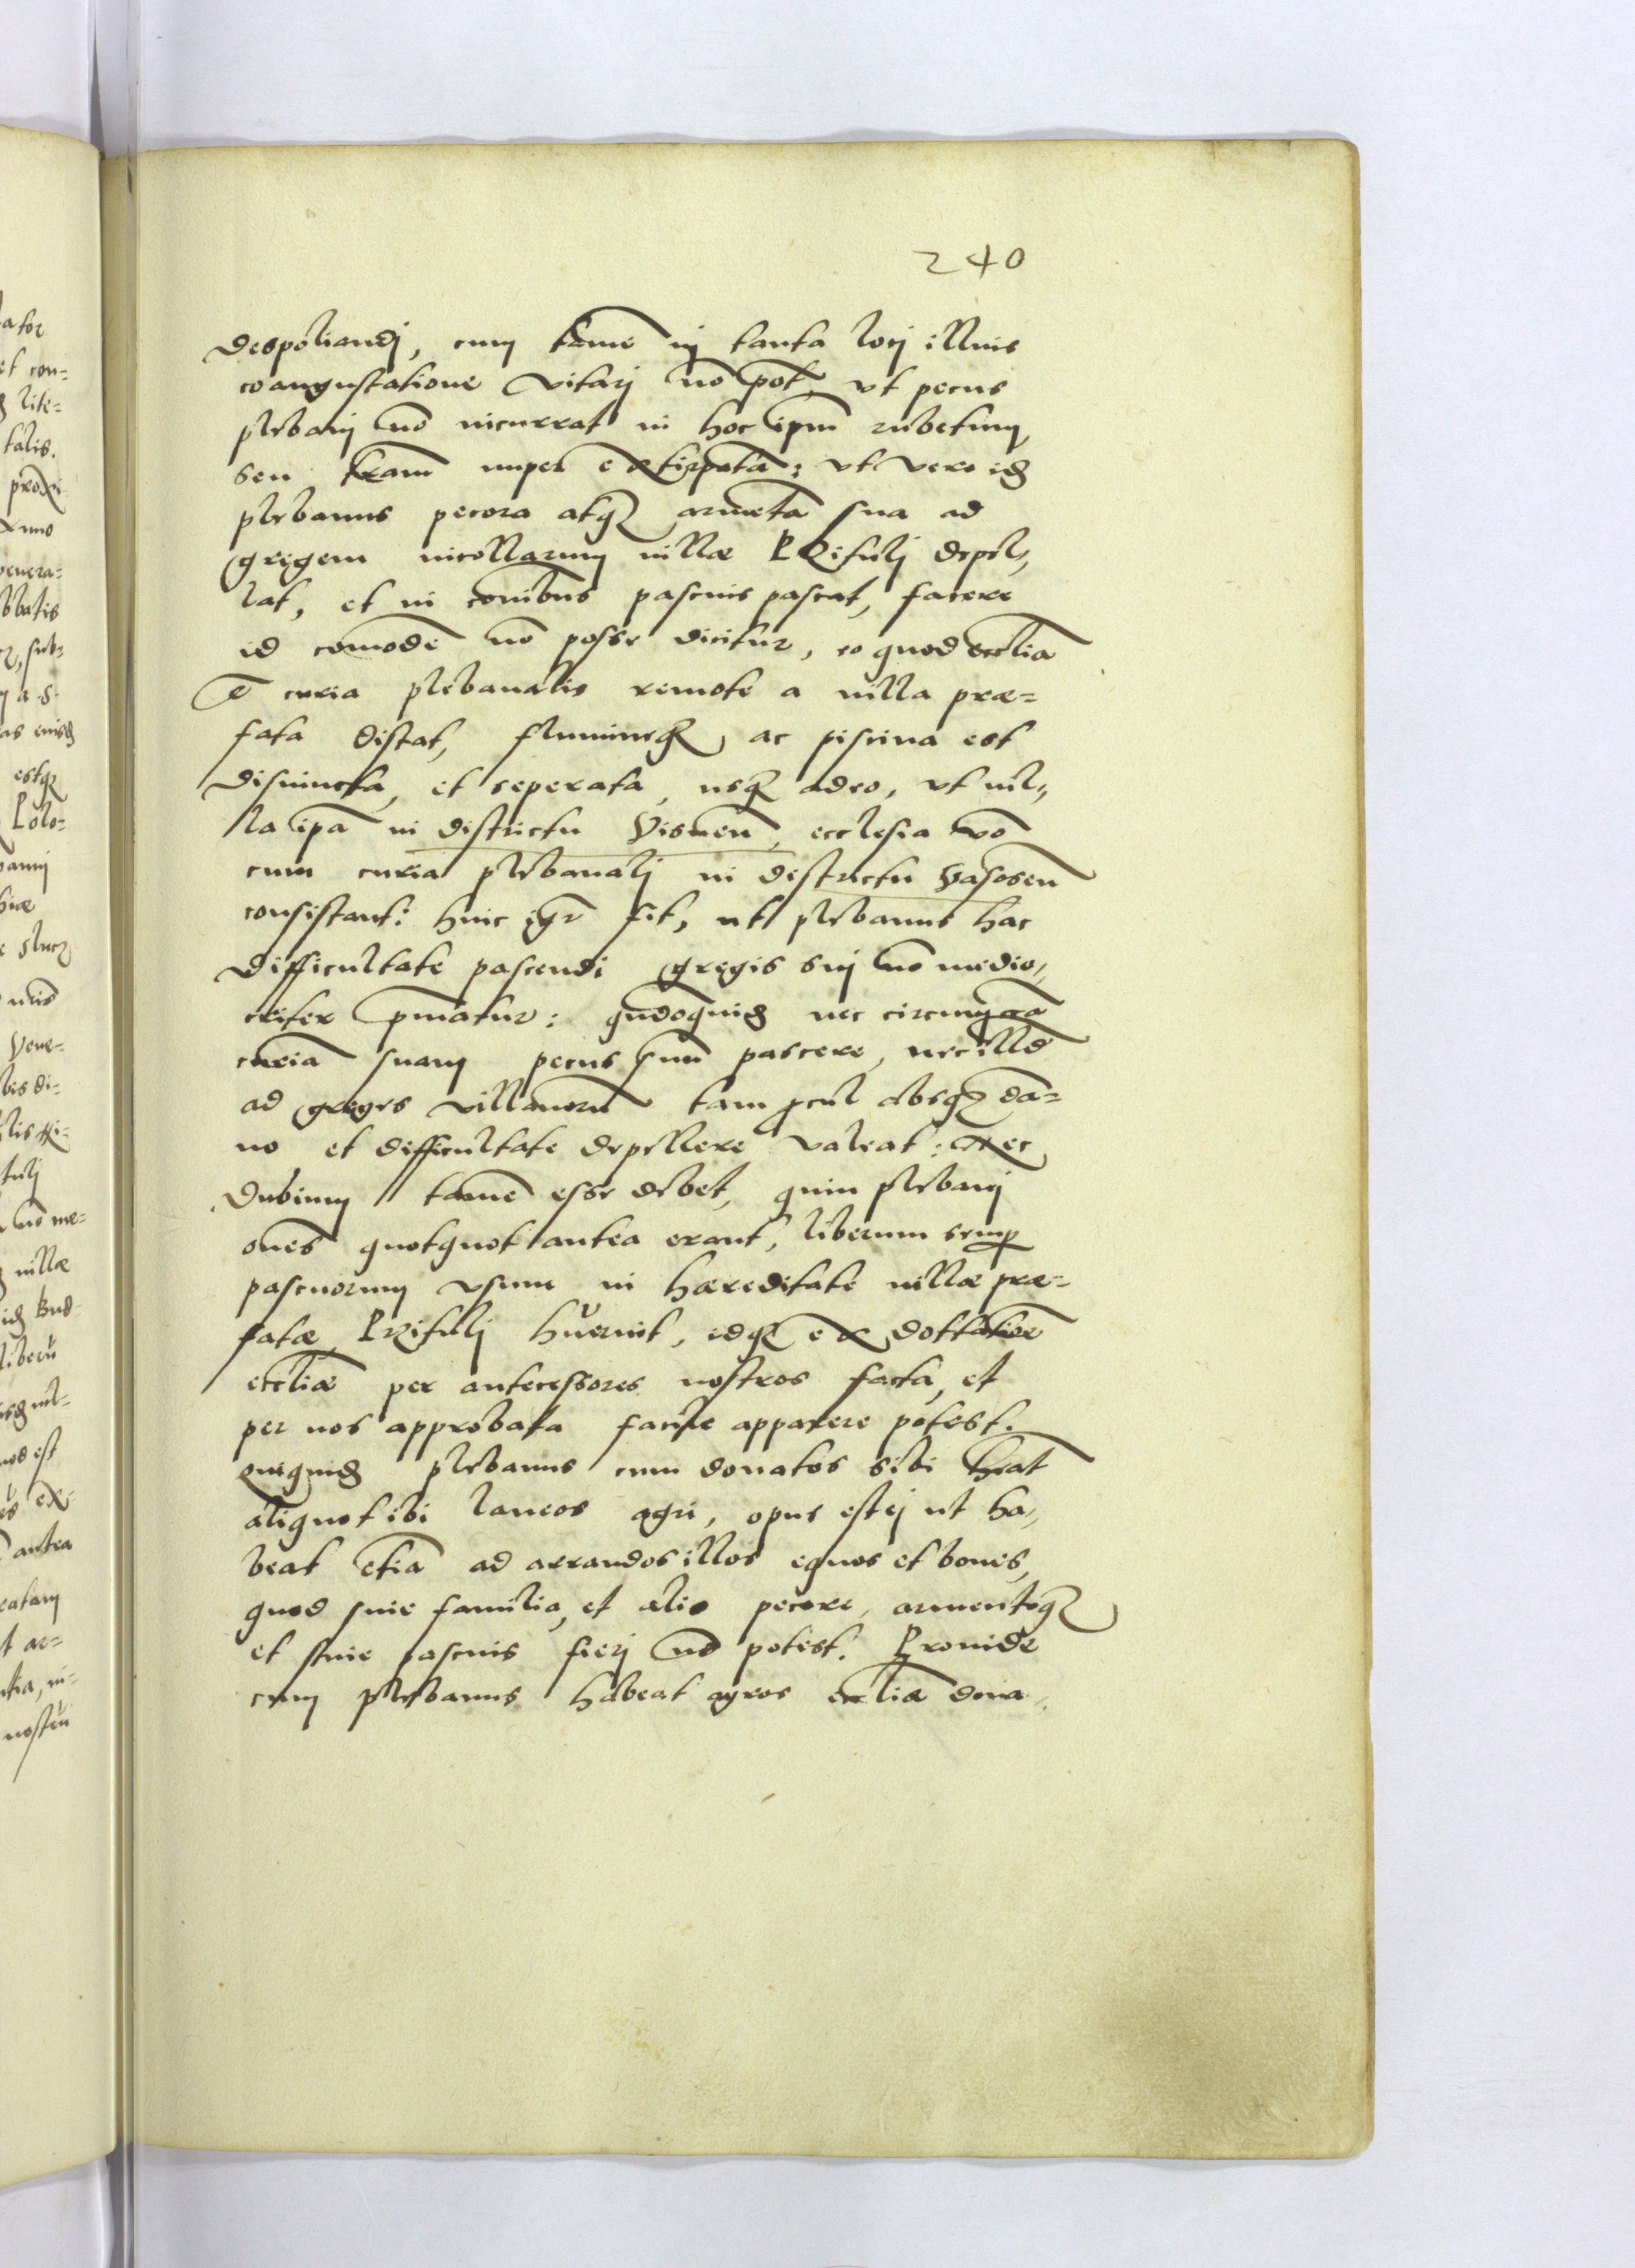 240
despoliandj, cum tamē in tanta locj illius
coangustatione vitarj nō pōt, vt pecus
plebanj nō incurrat in hoc ipm̄ rubetum,
seu terram nuper extirpatā: vt vero idē
plebanus pecora atq₃ armētā sua ad
gregem incollarum villæ Przitulj depel,,
lat, et in cōnibus pascuis pascat, facere
id comodē nō posse dicitur, eo quod ecclīa
ē curia plebanalis remote a villa præ=
fata distat, flumineq₃ ac piscina est
disiuncta, et seperata, usq₃ adeo, vt uil,,
la ipā in districtu Visneñ, ecclesia vō
cum curia plebanalj in districtu Vasoseñ
consistant: hinc igr̄ fit, ut plebanus hac
difficultate pascendi gregis suj nō medio,,
criter pmātur: qn̄doquidē nec circum
curiā suam pecus suū pascere, nec illud
ad greges villanorū tam pcul absq₃ dā=
no et difficultate depellere valeat: Nec
dubium tamē esse debet, quin plebanj
oñes quotquot antea erant, liberum semp
pascuorum vsum in hæreditate villæ præ=
fatæ Przitulj hūerint, idq₃ ex dottatiōe
ecclīæ per antecessores nostros facta, et
per nos approbata facile apparere potest.
quiquidē plebanus cum donatos sibi hēat
aliquot ibi laneos agri, opus est ej ut ha,,
beat etiā ad arrandos illos equos et boues,
quod sine familia, et alio pecore, armentoq₃
et sine pascuis fierj nō potest. Prouide
cum plebanus habeat agros ecclīæ dona,,